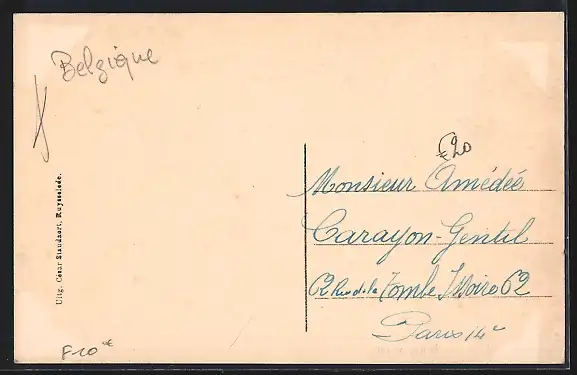 Belgique
€20
Monsieur Amédée
Carayon-Gentil
62 Rue de la Tombe Issoire 62
Paris 14e
Uitg. Cesar Standaert, Ruysselede.
F-10 €